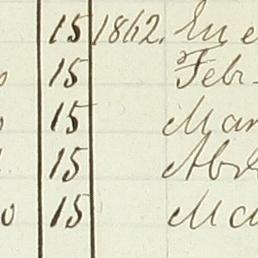 15 1862. Ene
15 Febr
15 Mar
15 Abr
o 15 Ma